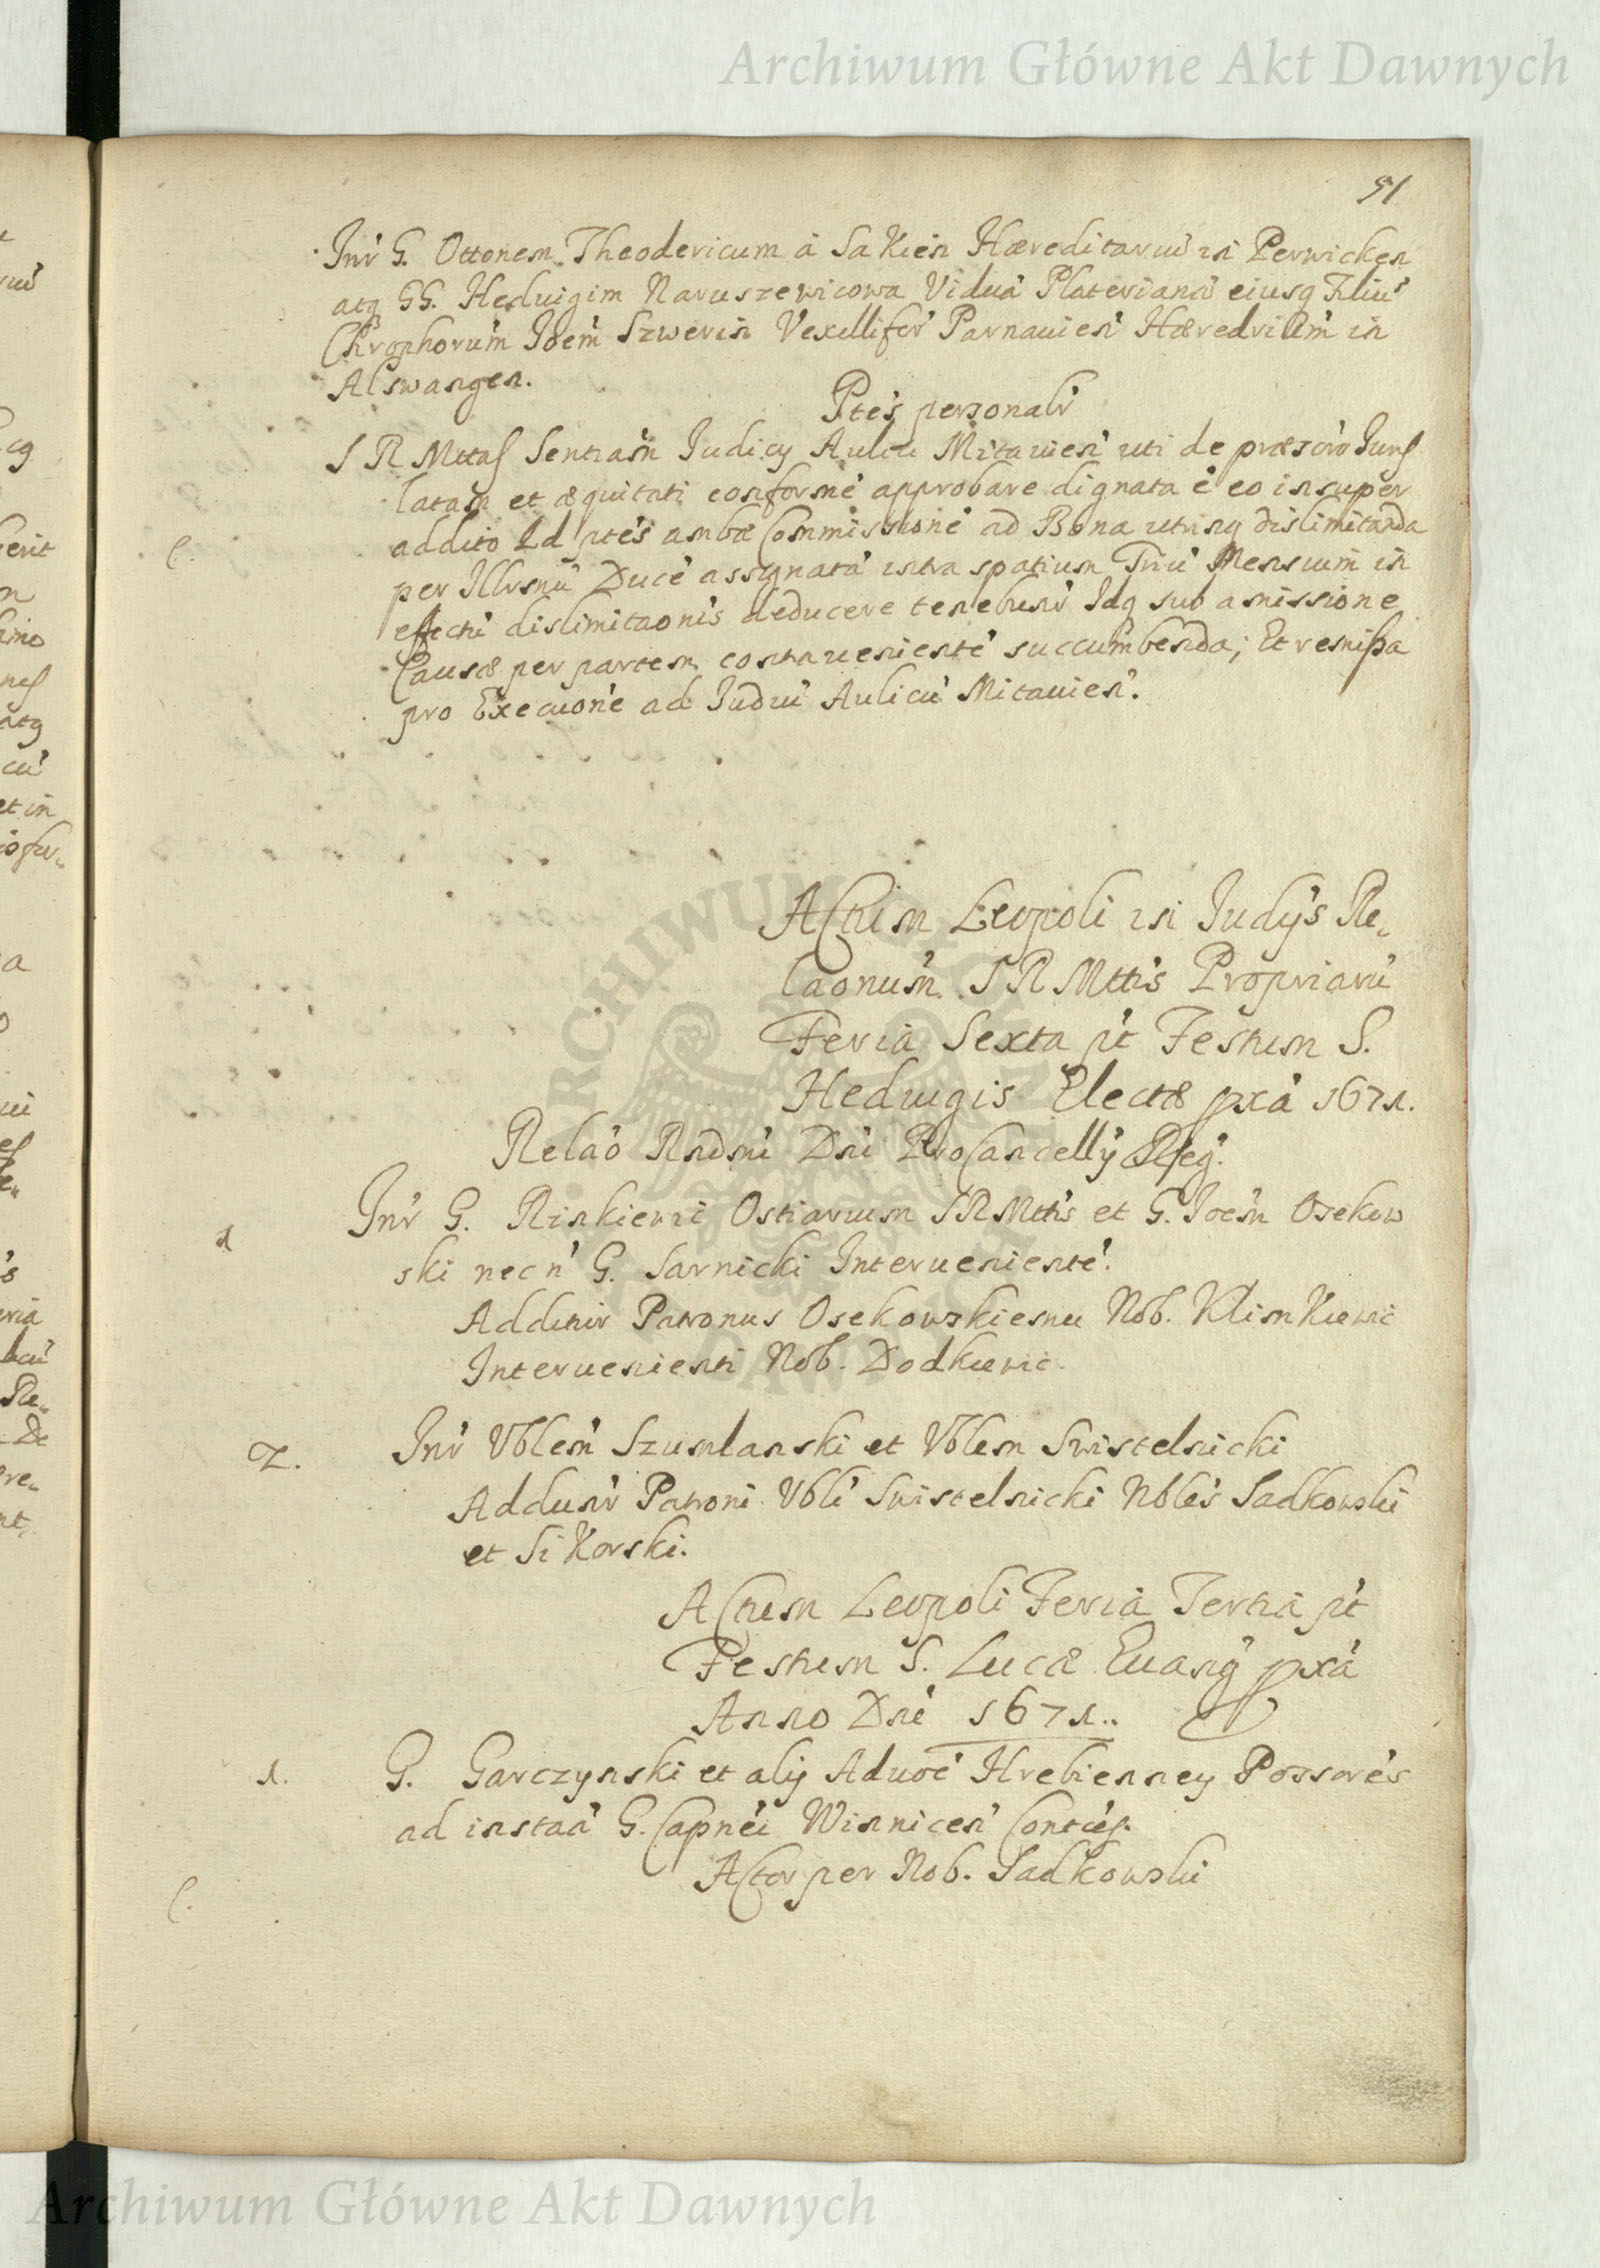 Archiwum Główne Akt Dawnych
51
Inr̃ G. Ottonem Theodericum à Sakien Hæreditariu' in Perwicken
atq GG. Heduigim Naruszewicowa Viduá Platerianá eiusq Filiu'
Chrophorum' Joem' Szwerin Vexillifer' Parnauien' Hæredrium' in
Alswangen.
Ptes' personalr'
S R Mttas Sentiam' Iudicy Aulici Mitauien' uti de præscro' Iuris
latam et æquitati conforme' approbare dignata e' eo insuper
addito Qd ptes' ambæ Commissione' ad Bona utrinq dislimitanda
per Illrsnu' Duce' assignata' intra spatium Triu' Mensium in
effectu' dislimitaonis' deducere tenebunr' Idq sub amissione
Causæ per partem contrauenientè succumbenda; Et remissa
pro Execuone' ad Iudiu' Aulicu' Mitauien'.
C.
Actum Leopoli in Iudys' Re-
laonum' S R Mttis Propriaru'
Feria Sexta pt' Festum S.
Heduigis Electæ pxa' 1671.
Relao' Rndmi' Dni' ProCancelly Regj.
1
Inr' G. Rinkiewic Ostiarium S R Mttis et G. Joem' Osekow
ski necn' G. Sarnicki Interueniente'.
Additur Patronus Osekowskiemu Nob. Klimkiewic
Interuenienti Nob. Dodkiewic.
2.
Inr' Vblem' Szumlanski et Vblem Swistelnicki
Addunr' Patroni Vbli' Swistelnicki Nbles' Sadkowski
et Sikorski.
Actum Leopoli Feria Tertia pt'
Festum S. Lucæ Euang' pxa'
Anno Dni' 1671.
1.
G. Garczynski et alij Aduoe' Hrebienney Possores'
ad instaa' G. Capnei' Winnicen' Conties.
Actor per Nob. Sadkowski
C.
Archiwum Główne Akt Dawnych